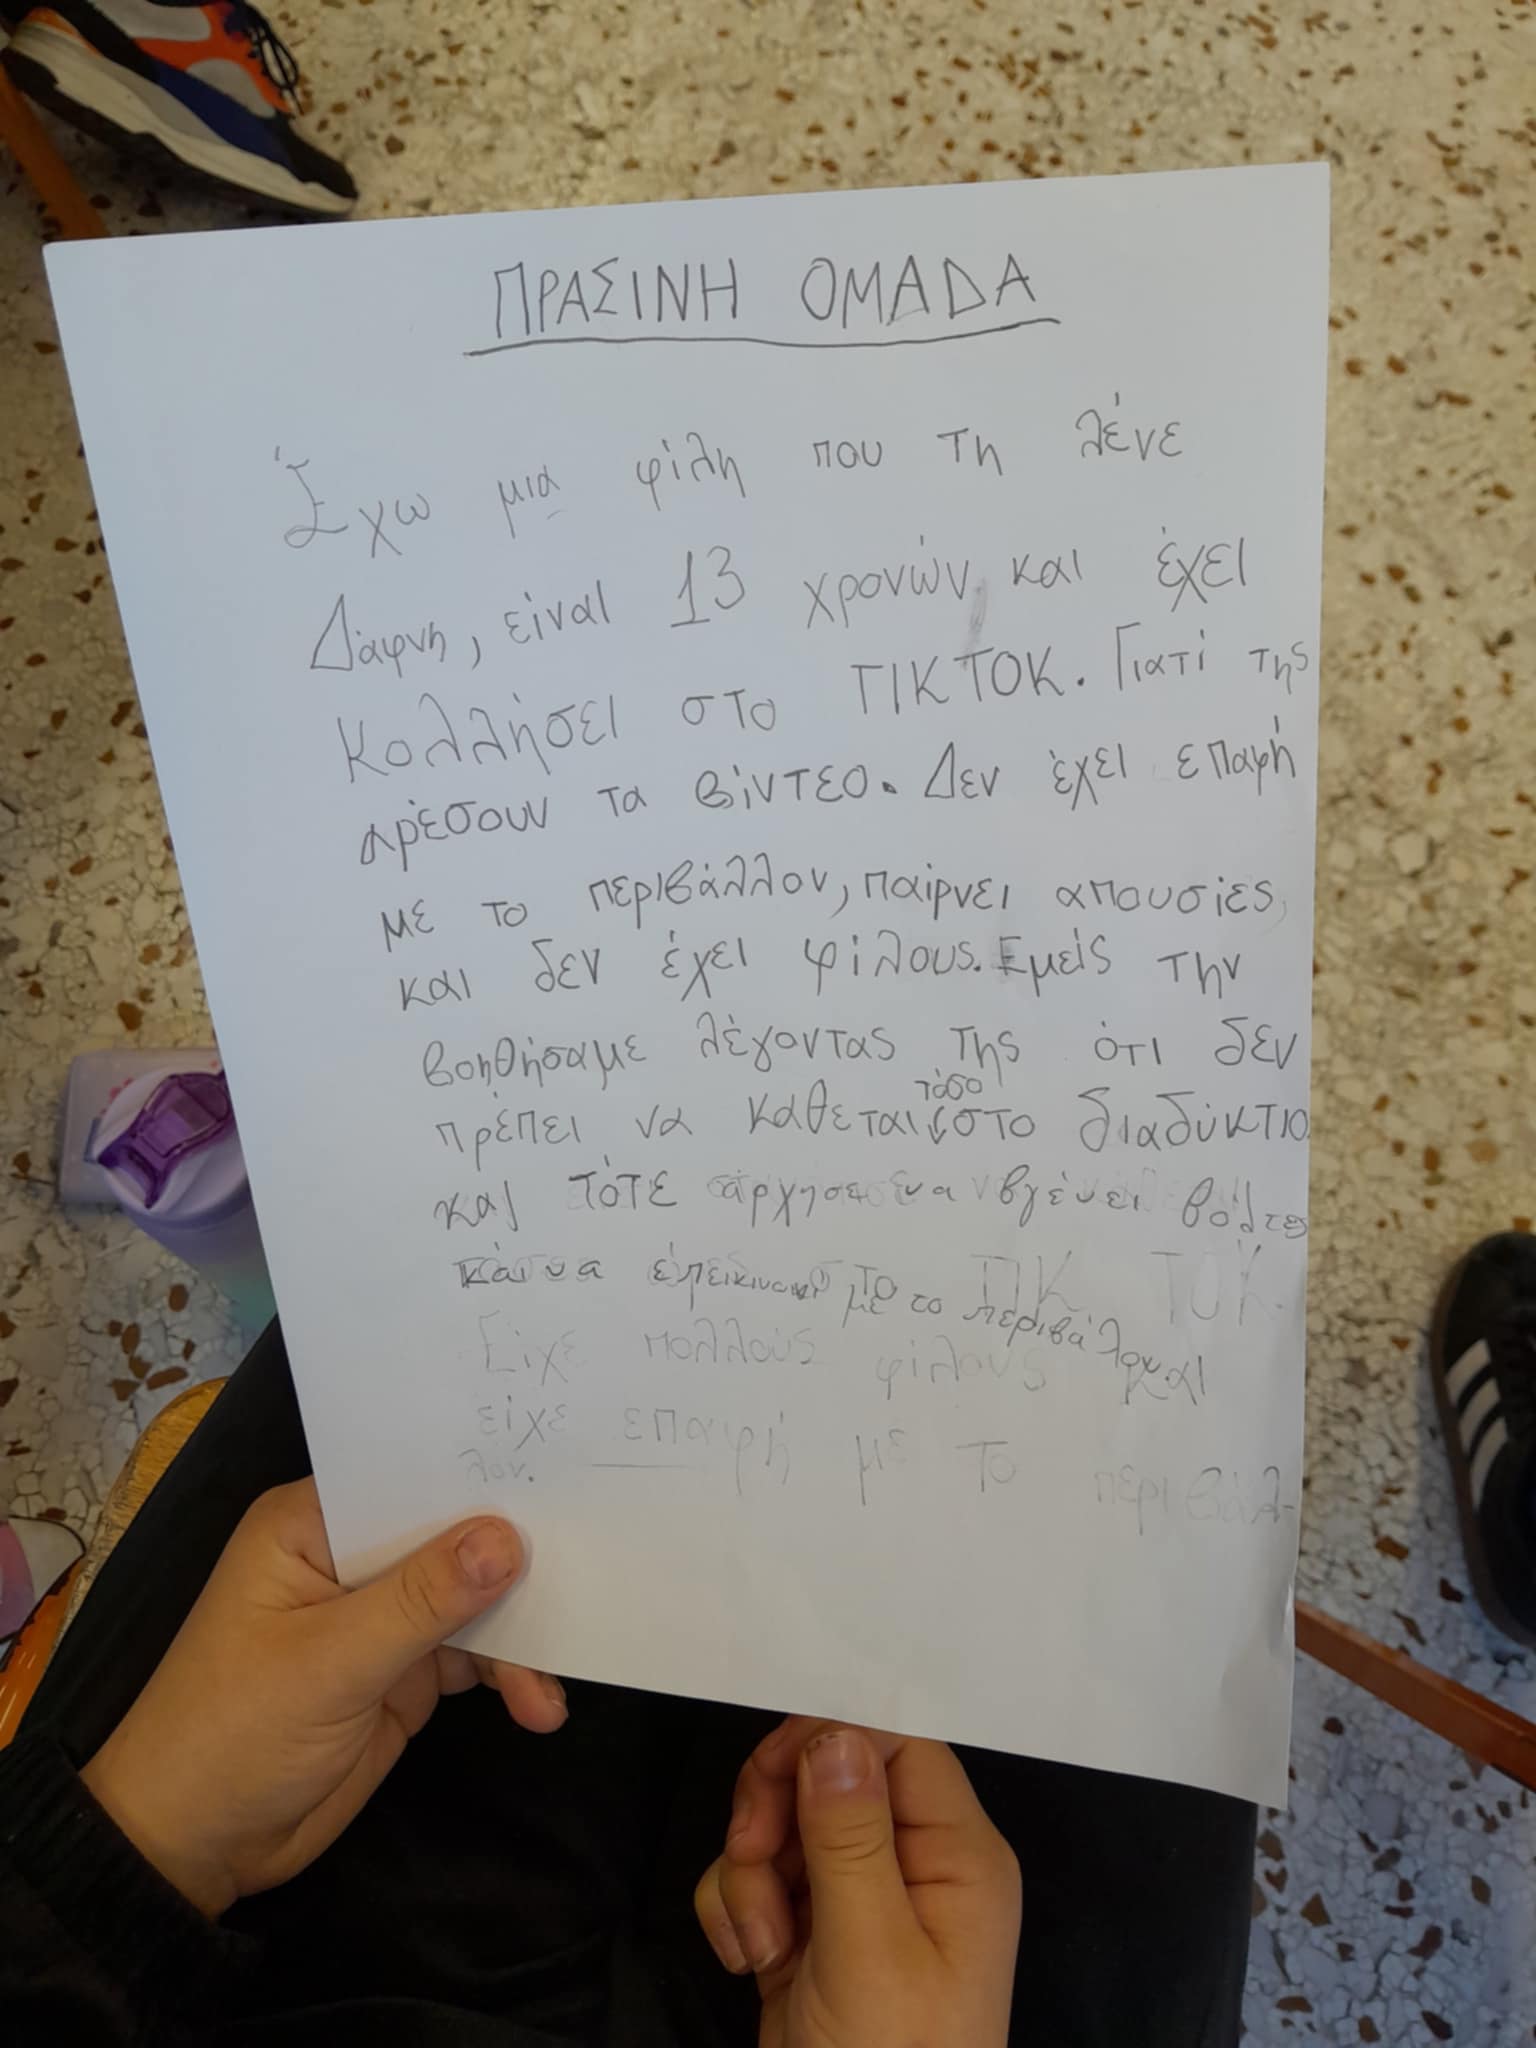 ΠΡΑΣΙΝΗ ΟΜΑΔΑ
Έχω μια φίλη που τη λένε
Δάφνη, είναι 13 χρονών και έχει
κολλήσει στο ΤΙΚ ΤΟΚ. Γιατί της
αρέσουν τα βίντεο. Δεν έχει επαφή
με το περιβάλλον, παίρνει απουσίες,
και δεν έχει φίλους. Εμείς την
βοηθήσαμε λέγοντας της ότι δεν
τόσο
πρέπει να κάθεται στο διαδύκτιο.
και τότε άρχησε να βγένει βόλτες
και να με το
Είχε πολλούς φίλους και
είχε επαφή με το περιβάλ-
λον.